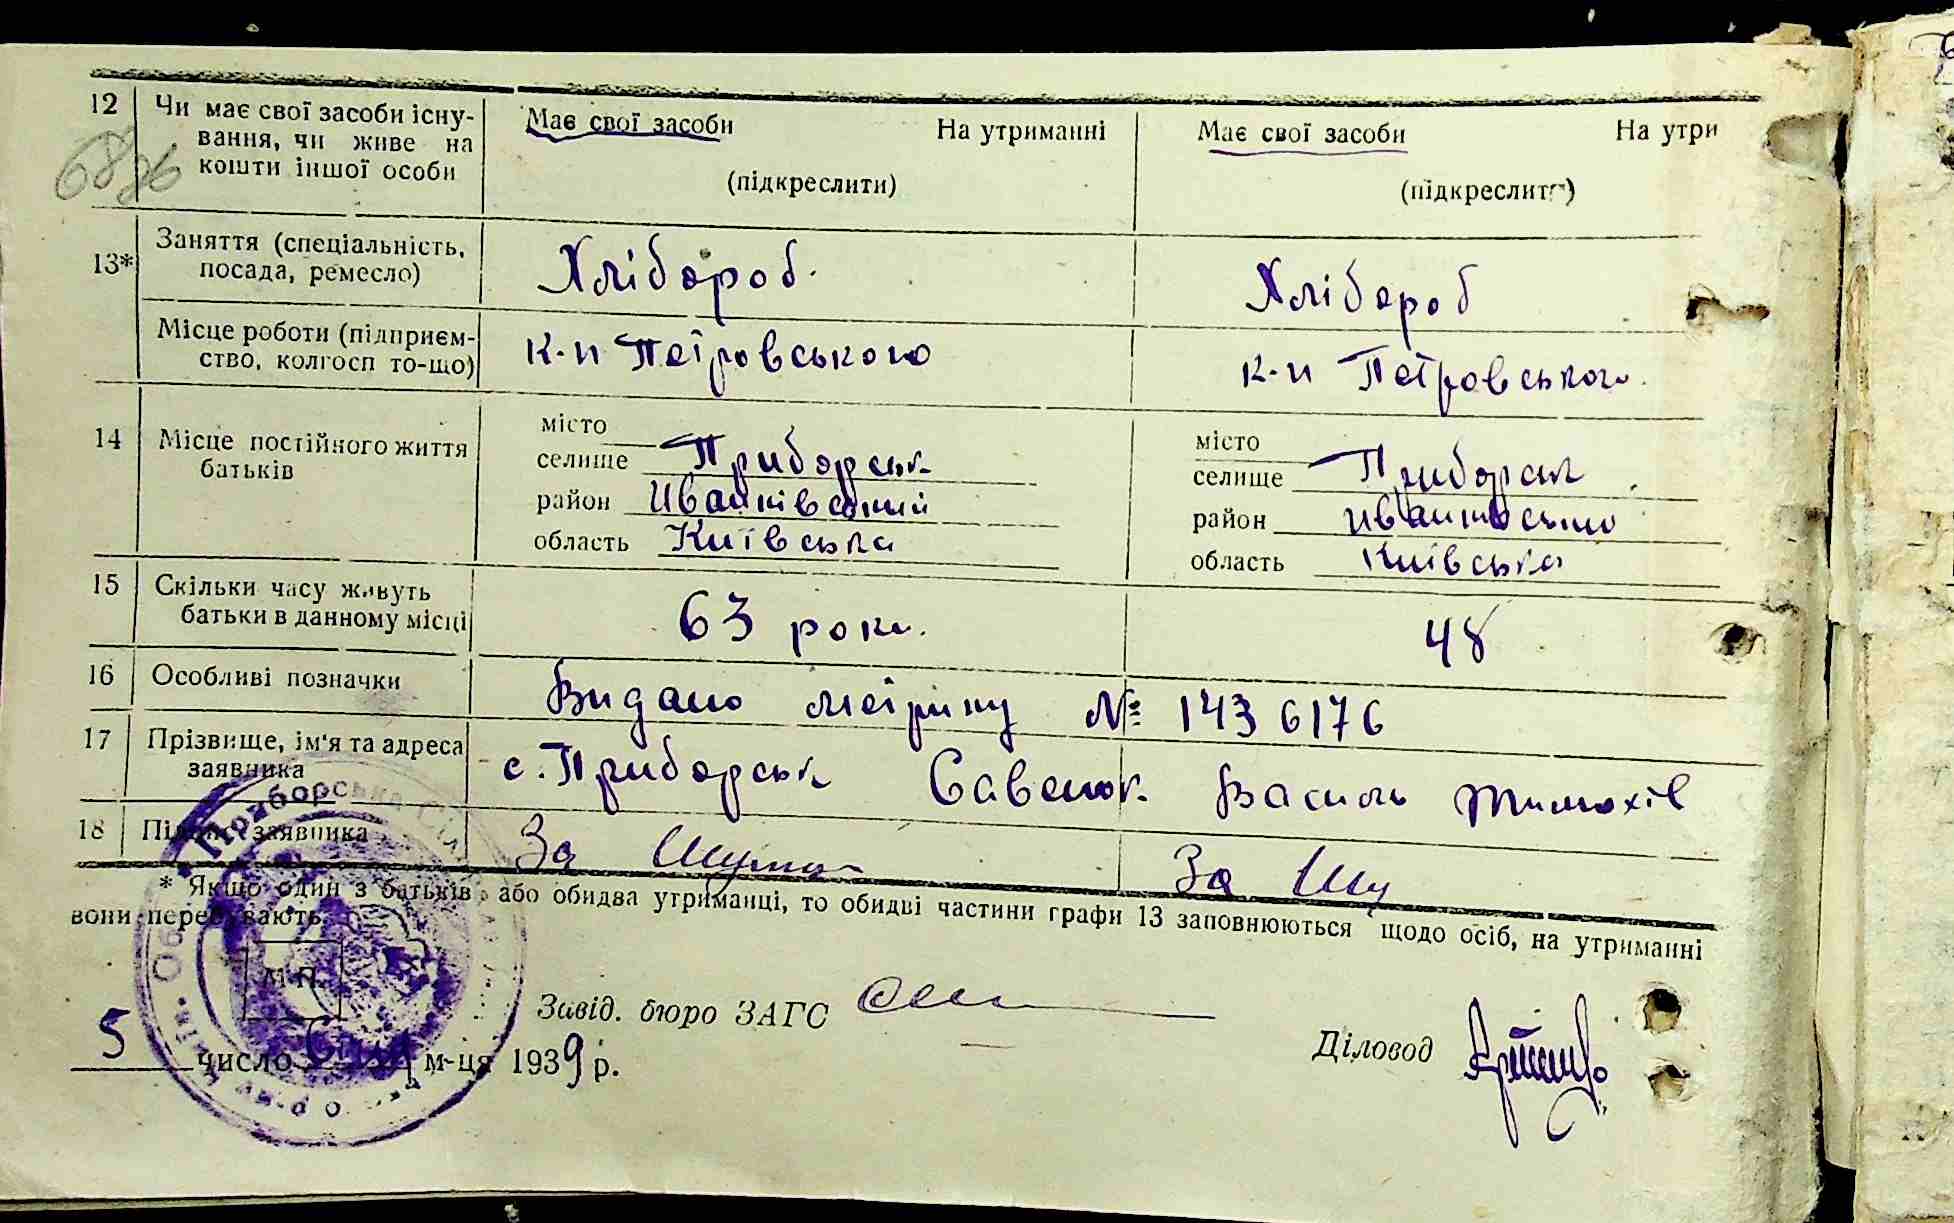 12 Чи має свої засоби існу-
вання, чи живе на
кошти іншої особи
Має свої засоби На утриманні
(підкреслити)
Має свої засоби На утри
(підкреслити)
13* Заняття (спеціальність,
посада, ремесло)
Хлібороб.
Хлібороб
Місце роботи (підприєм-
ство, колгосп то-що)
к-п Петровського
к-п Петровського.
14 Місце постійного життя
батьків
місто
селище Приборськ
район Иванківський
область Київська
місто
селище Приборськ
район
область Київська
15 Скільки часу живуть
батьки в данному місці
63 роки.
48
16 Особливі позначки
Видано метрику № 1436176
17 Прізвище, ім'я та адреса
заявника
с. Приборськ Савенок Василь Тимохів
18 заявника
За
За Шу
* Якщо один з батьків або обидва утриманці, то обидві частини графи 13 заповнюються щодо осіб, на утриманні
вони перебувають.
Приборська
М.П.
Завід. бюро ЗАГС
Діловод
5 число м-ця 1939 р.